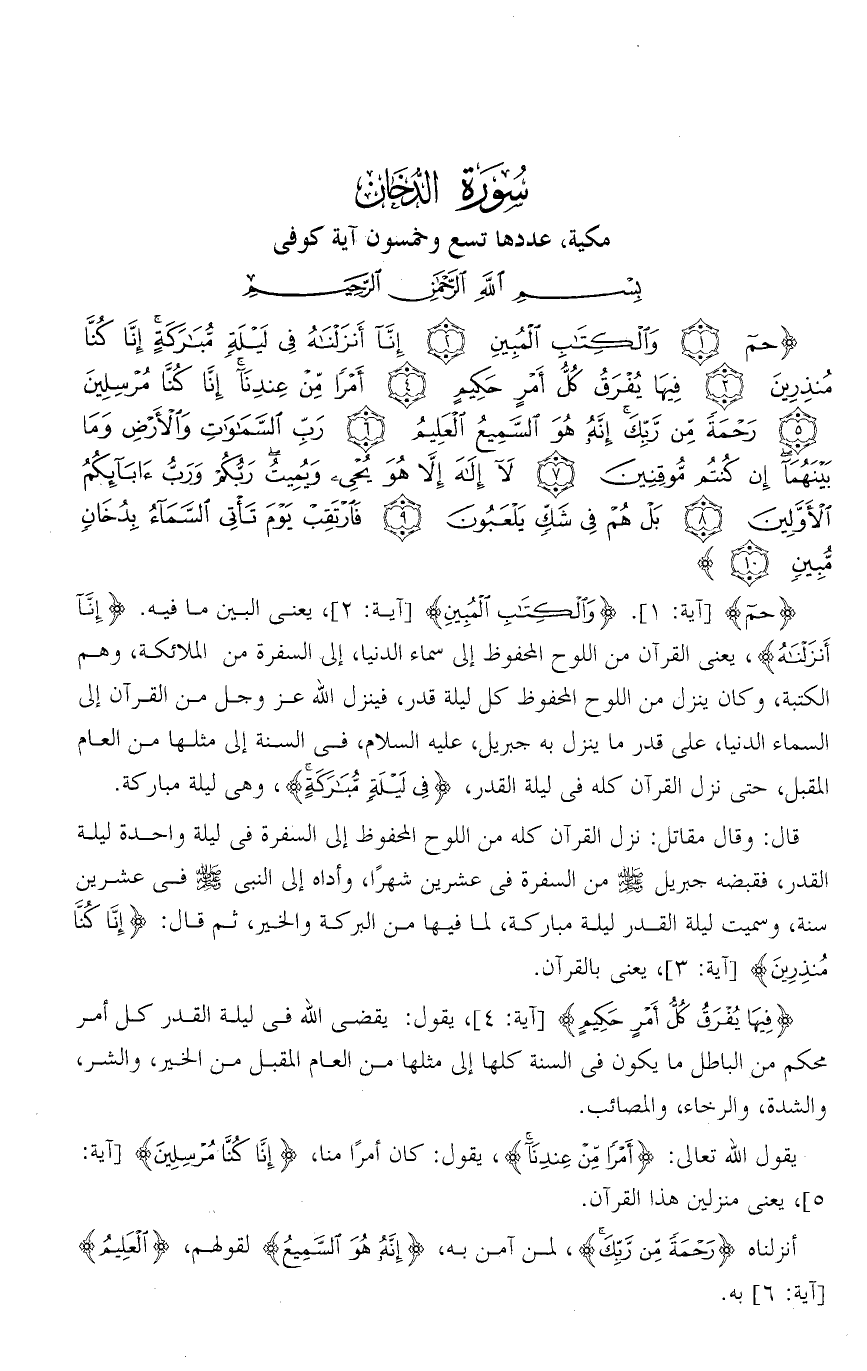 سُورَة الدُّخَان
مكية، عددها تسع وخمسون آية كوفى
بِسْمِ ٱللَّهِ ٱلرَّحْمَٰنِ ٱلرَّحِيمِ
﴿حمٓ ١ وَٱلْكِتَٰبِ ٱلْمُبِينِ ٢ إِنَّآ أَنزَلْنَٰهُ فِى لَيْلَةٍ مُّبَٰرَكَةٍ ۚ إِنَّا كُنَّا
مُنذِرِينَ ٣ فِيهَا يُفْرَقُ كُلُّ أَمْرٍ حَكِيمٍ ٤ أَمْرًا مِّنْ عِندِنَآ ۚ إِنَّا كُنَّا مُرْسِلِينَ
٥ رَحْمَةً مِّن رَّبِّكَ ۚ إِنَّهُۥ هُوَ ٱلسَّمِيعُ ٱلْعَلِيمُ ٦ رَبِّ ٱلسَّمَٰوَٰتِ وَٱلْأَرْضِ وَمَا
بَيْنَهُمَآ ۖ إِن كُنتُم مُّوقِنِينَ ٧ لَآ إِلَٰهَ إِلَّا هُوَ يُحْىِۦ وَيُمِيتُ ۖ رَبُّكُمْ وَرَبُّ ءَابَآئِكُمُ
ٱلْأَوَّلِينَ ٨ بَلْ هُمْ فِى شَكٍّ يَلْعَبُونَ ٩ فَٱرْتَقِبْ يَوْمَ تَأْتِى ٱلسَّمَآءُ بِدُخَانٍ
مُّبِينٍ ١٠﴾
﴿حمٓ﴾ [آية: ١]. ﴿وَٱلْكِتَٰبِ ٱلْمُبِينِ﴾ [آية: ٢]، يعنى البين ما فيه. ﴿إِنَّآ
أَنزَلْنَٰهُ﴾، يعنى القرآن من اللوح المحفوظ إلى سماء الدنيا، إلى السفرة من الملائكة، وهم
الكتبة، وكان ينزل من اللوح المحفوظ كل ليلة قدر، فينزل الله عز وجل من القرآن إلى
السماء الدنيا، على قدر ما ينزل به جبريل، عليه السلام، فى السنة إلى مثلها من العام
المقبل، حتى نزل القرآن كله فى ليلة القدر، ﴿فِى لَيْلَةٍ مُّبَٰرَكَةٍ ۚ﴾، وهى ليلة مباركة.
قال: وقال مقاتل: نزل القرآن كله من اللوح المحفوظ إلى السفرة فى ليلة واحدة ليلة
القدر، فقبضه جبريل ﷺ من السفرة فى عشرين شهرًا، وأداه إلى النبى ﷺ فى عشرين
سنة، وسميت ليلة القدر ليلة مباركة، لما فيها من البركة والخير، ثم قال: ﴿إِنَّا كُنَّا
مُنذِرِينَ﴾ [آية: ٣]، يعنى بالقرآن.
﴿فِيهَا يُفْرَقُ كُلُّ أَمْرٍ حَكِيمٍ﴾ [آية: ٤]، يقول: يقضى الله فى ليلة القدر كل أمر
محكم من الباطل ما يكون فى السنة كلها إلى مثلها من العام المقبل من الخير، والشر،
والشدة، والرخاء، والمصائب.
يقول الله تعالى: ﴿أَمْرًا مِّنْ عِندِنَآ ۚ﴾، يقول: كان أمرًا منا، ﴿إِنَّا كُنَّا مُرْسِلِينَ﴾ [آية:
٥]، يعنى منزلين هذا القرآن.
أنزلناه ﴿رَحْمَةً مِّن رَّبِّكَ ۚ﴾، لمن آمن به، ﴿إِنَّهُۥ هُوَ ٱلسَّمِيعُ﴾ لقولهم، ﴿ٱلْعَلِيمُ﴾
[آية: ٦] به.